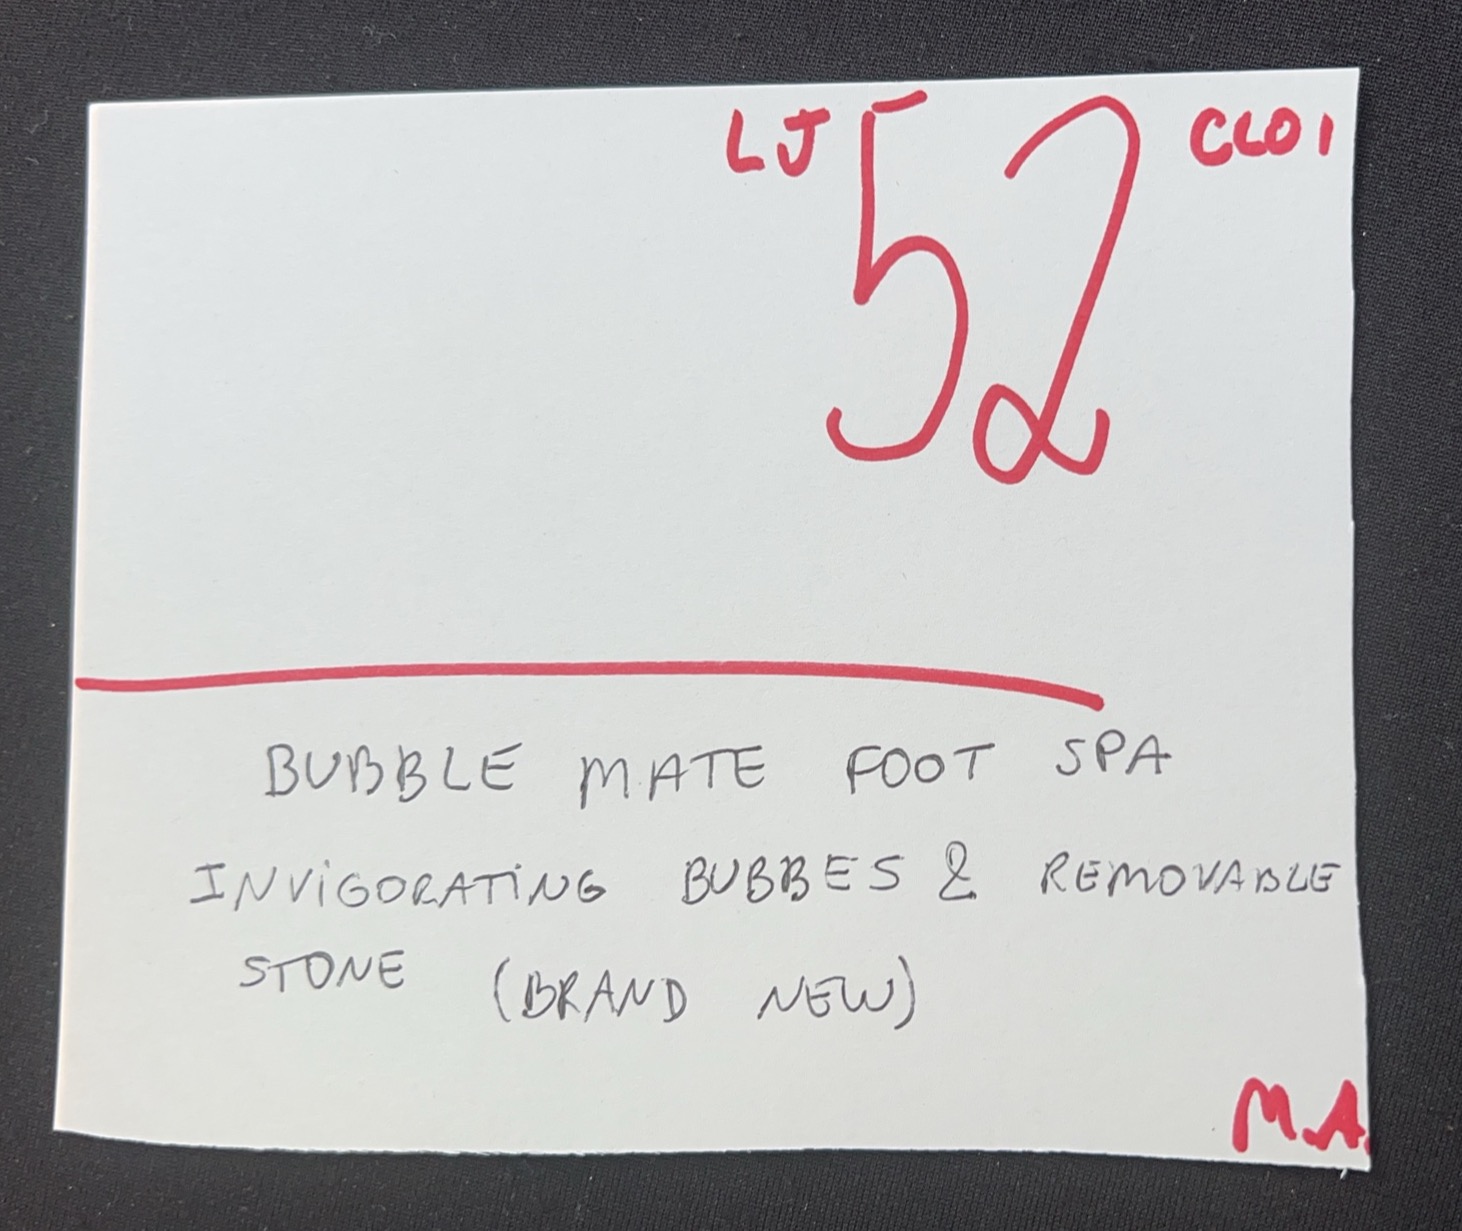 LJ 52 CLO1
BUBBLE MATE FOOT SPA
INVIGORATING BUBBES & REMOVABLE
STONE (BRAND NEW)
M.A.